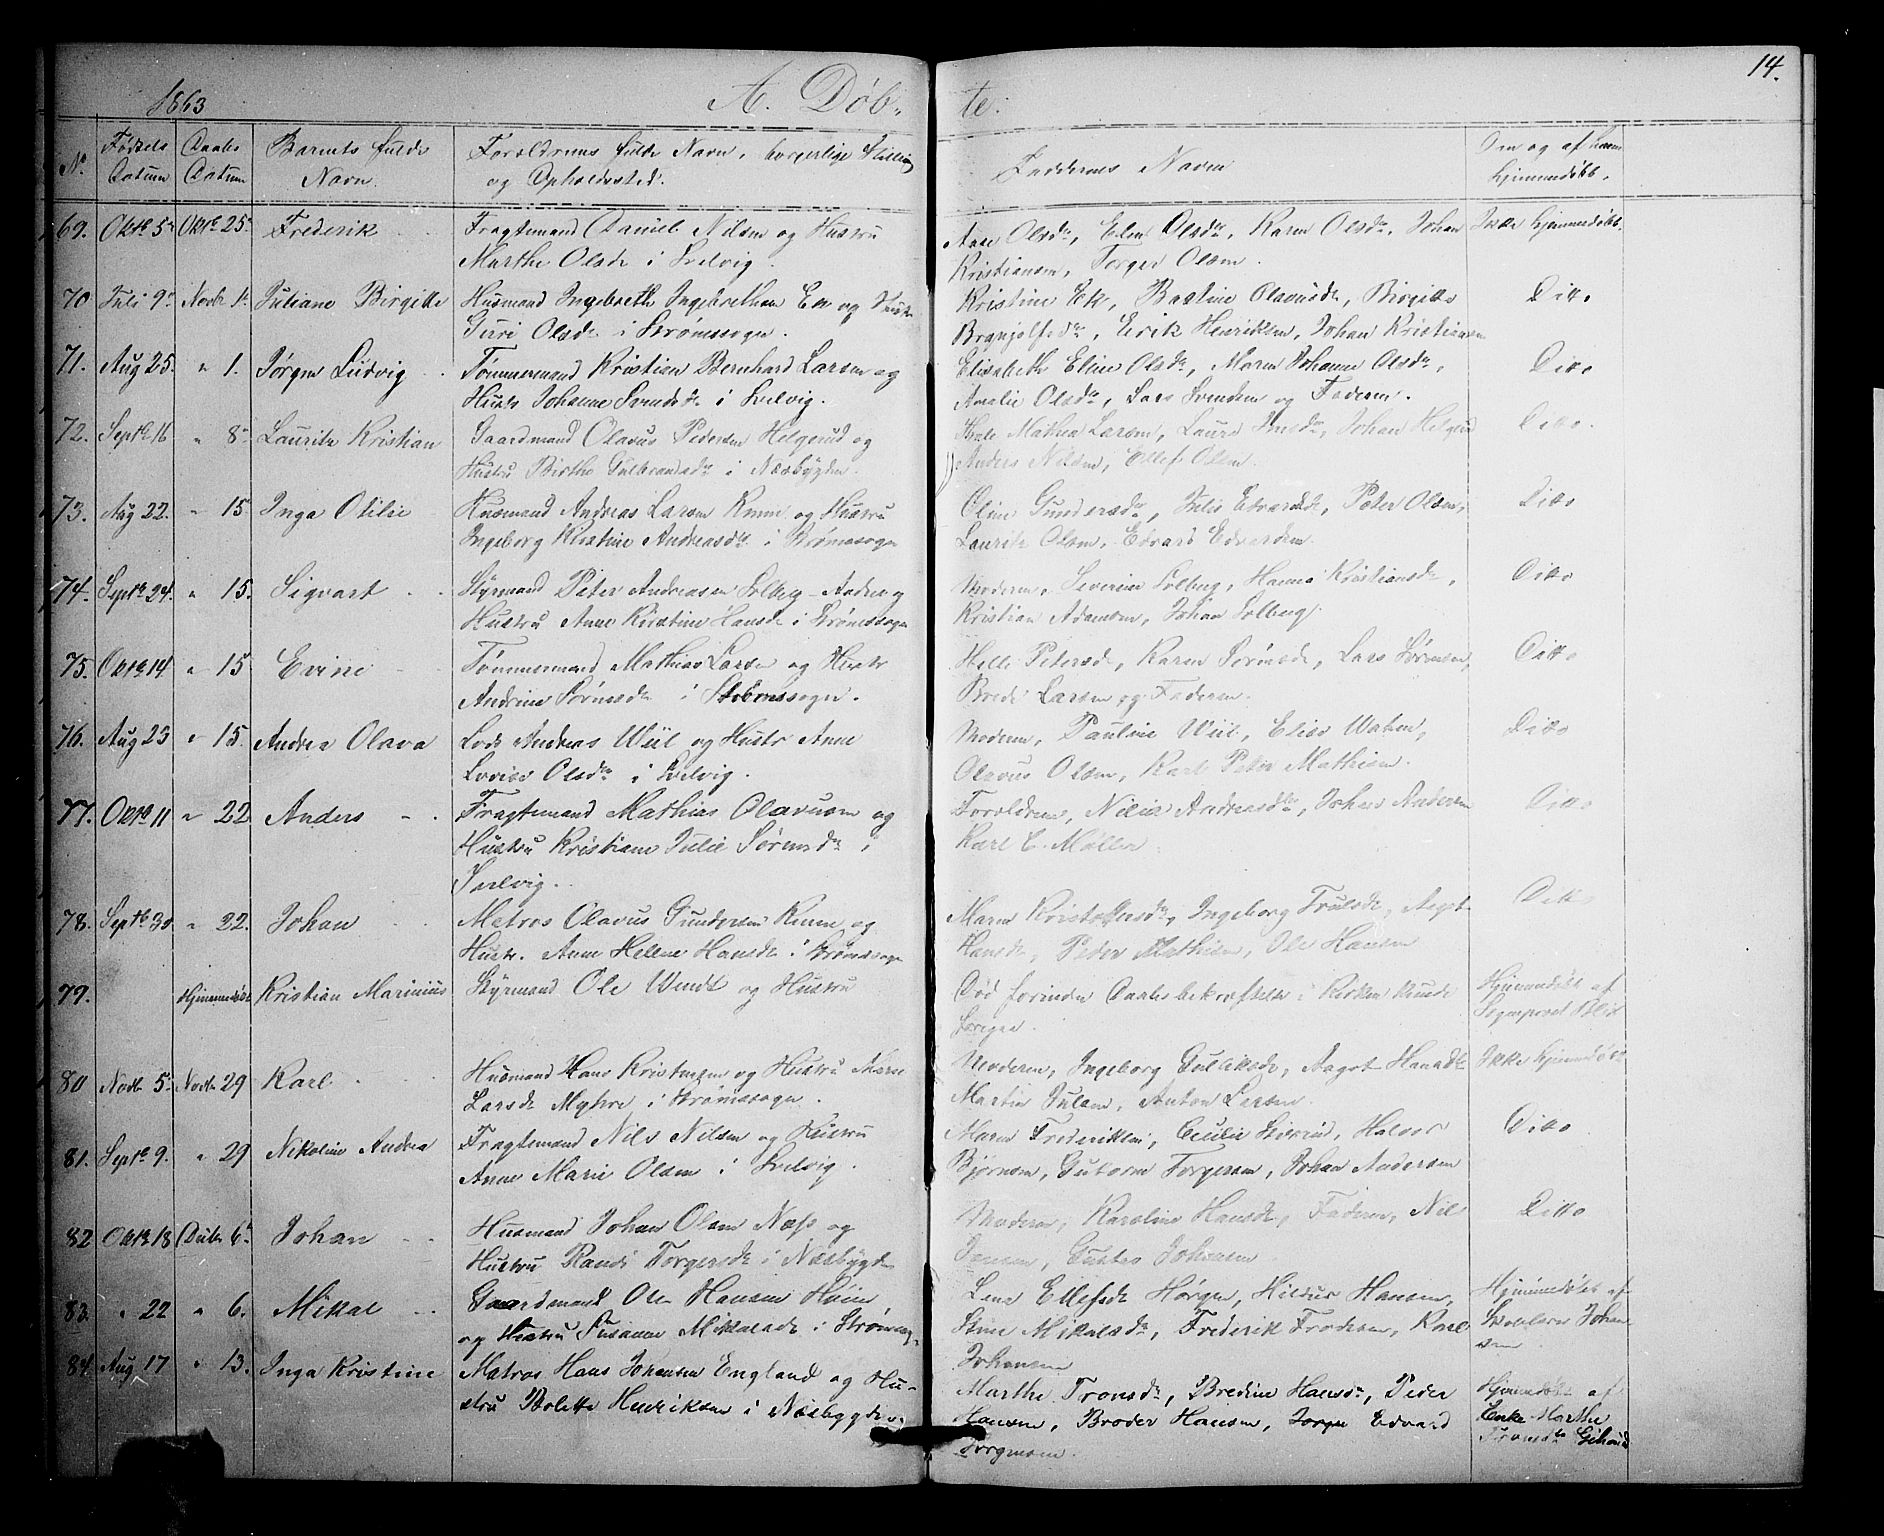 14.
1863
A. Døb-
te.
No.
Fødsels
Datum
Daabs
Datum
Barnets fulde
Navn.
Forældrenes fulde Navn, borgerlige Stilling
og Opholdssted.
Faddernes Navn
Om og af hvem
hjemmedøbt.
69. Oktb 5 Oktb 25 Frederik
Fragtemand Daniel Nilsen og Hustru
Marthe Olsdr i Svelvig.
Ane Olsdr, Elen Olsdr, Karen Olsdr, Johan
Kristiansen, Torger Olsen.
Ikke hjemmedøbt.
70 Juli 9 Novb 1 Juliane Birgitte
Husmand Ingebreth Ingebrethsen Ek og Hustru
Guri Olsdr i Strømssogn.
Kristine Ek, Bastine Olavusdr, Birgitte
Brynjolfsdr, Eerik Henriksen, Johan Kristiansen
Ditto
71. Aug 25. " 1. Jørgen Ludvig
Tømmermand Kristian Bernhard Larsen og
Hustr Johanne Svendsdr i Svelvig.
Elisabeth Eline Olsdr, Maren Johanne Olsdr,
Amalie Olsdr, Lars Svendsen og Faderen.
Ditto
72. Septb 16 " 8 Lauritz Kristian
Gaardmand Olavus Pedersen Helgerud og
Hustru Birthe Gulbrandsdr i Næsbygden.
Mathea Larsen, Johan Helgerud
Anders Nilsen, Ellef Olsen.
Ditto.
73. Aug 22. " 15 Inga Otilie
Husmand Andreas Larsen og Hustru
Ingeborg Kristine Andreasdr i Strømssogn
Oline Gundersdr, Julie Edvardsdr, Peter Olsen,
Lauritz Olsen, Edvard Edvardsen.
Ditto
74. Septb 24. " 15. Sigvart
Styrmand Peter Andreasen Solberg og
Hustru Anne Kirstine Hansdr i Strømssogn
Moderen, Severine Solberg, Hanna Kristiansdr,
Kristian Adamsen, Johan Solberg.
Ditto
75. Oktb 14 " 15 Evine
Tømmermand Mathias Larsen og Hustr
Andrine Sørensdr i Strømssogn.
Helle Petersdr, Karen Sørensdr, Lars Sørensen,
Brede Larsen og Faderen.
Ditto
76. Aug 23 " 15. Andrea Olava
Lods Andreas Wiil og Hustr Anne
Lovise Olsdr i Svelvig.
Moderen, Pauline Wiil, Elise
Olavus Olsen, Karl Peter Mathisen.
Ditto
77. Oktb 11 " 22 Anders
Fragtemand Mathias Olavusen og
Hustru Kristiane Julie Sørensdr i
Svelvig.
Forældrene, Nilia Andreasdtr, Johan Andersen
Karl E. Møller
Ditto
78. Septb 30 " 22. Johan
Matros Olavus Gundersen og
Hustr. Anne Helene Hansdr i Strømssogn
Maren Kristoffersdr, Ingeborg Trulsdr, Aagot
Hansdr, Peder Mathisen, Ole Hansen
Ditto
79. Hjemmedøbt Kristian Marinius
Styrmand Ole Wendt og Hustru
Død forinden Daabsbekræftelse i Kirken kunde
foregaa.
Hjemmedøbt af
Sognepræst
80 Novb 5 Novb 29 Karl
Husmand Hans Kristensen og Hustru Maren
Larsdr Myhre i Strømssogn.
Moderen, Ingeborg Gulliksdr, Aagot Hansdr
Martin Julsen, Anton Larsen.
Ikke hjemmedøbt
81. Septb 9. " 29 Nikoline Andrea
Fragtemand Nils Nilsen og Hustru
Anne Marie Olsen i Svelvig.
Maren Frederiksen, Cecilie Halvor
Bjørnsen, Gutorm Torgersen, Johan Andersen
Ditto
82 Oktb 18 Decb 6 Johan
Husmand Johan Olsen Næss og
Hustru Randi Torgersdr i Næsbygden
Moderen, Karoline Hansdr, Faderen, Nils
Jensen, Gustav Johansen
Ditto
83. " 22 " 6. Mikal
Gaardmand Ole Hansen Høien
og Hustru Susanne Mikalsdr i Strømssogn
Lene Ellefsdr Hørgen, Hansen,
Stine Mikalsdr, Frederik Frodesen, Karl
Johansen
Hjemmedøbt af
Skolelærer Johan-
sen
84. Aug 17 " 13. Inga Kristine
Matros Hans Johansen England og Hu-
stru Bolette Henriksen i Næsbygden.
Marthe Tronsdr, Bredine Hansdr, Peder
Hansen, Broder Hansen, Jørgen Edvard
Jørgensen.
Hjemmedøbt af
Enke Marthe
Tronsdr